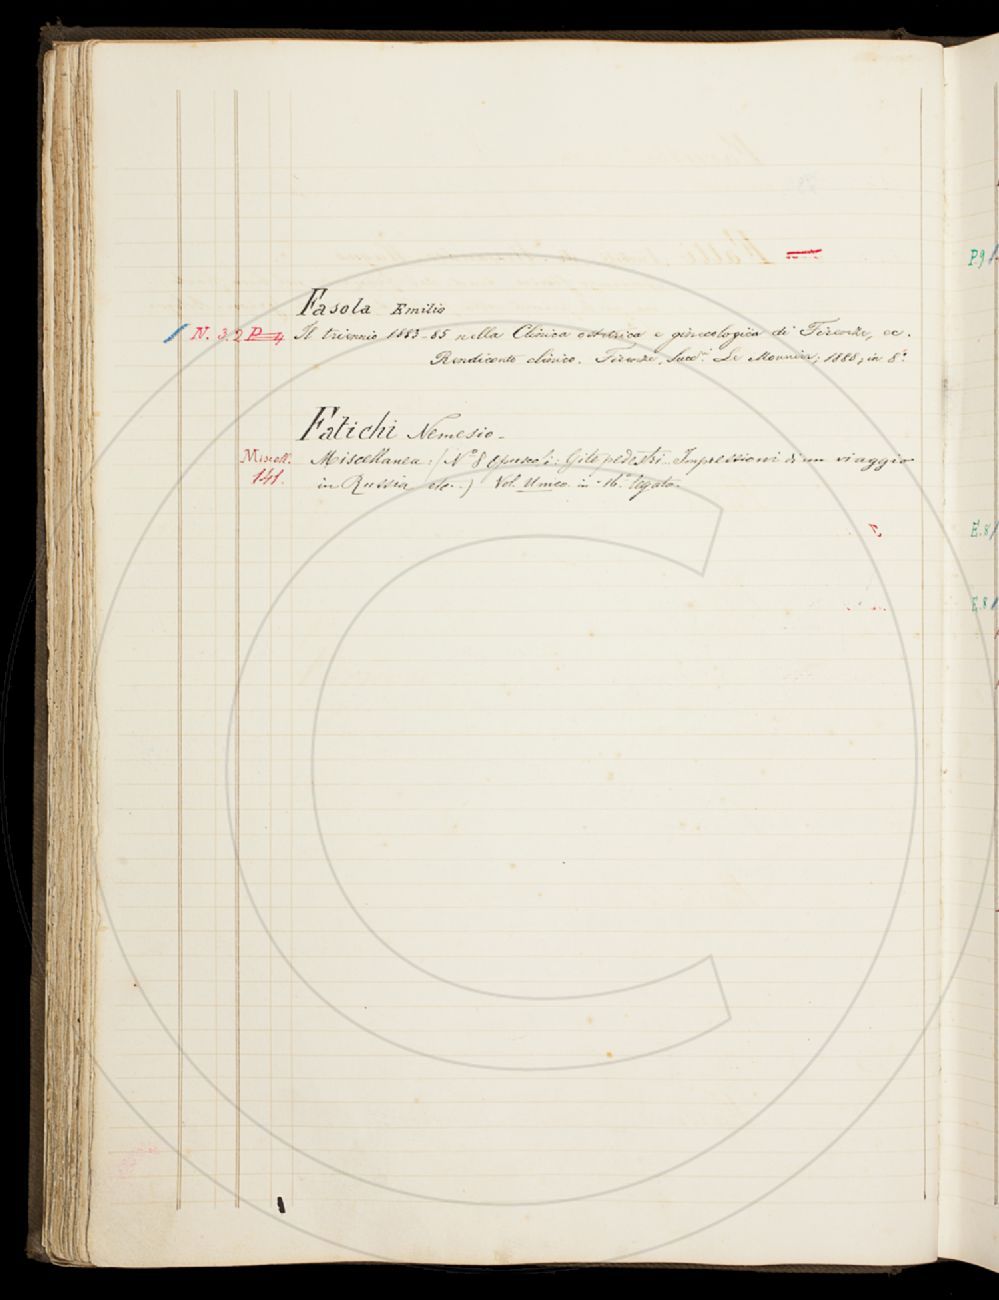 P.9
Fasola Emilio
N. 3.2 P 4 Il triennio 1883-85 nella Clinica ostetrica e ginecologica di Firenze, ec.
Rendiconto clinico. Firenze, Succ.ri Le Monnier, 1888, in 8.°
Fatichi Nemesio -
Miscell. Miscellanea: (N.° 8 Opuscoli: Gite pedestri. Impressioni di un viaggio
141. in Russia etc.) Vol. Unico in-16.° legato.
E.8
E.8